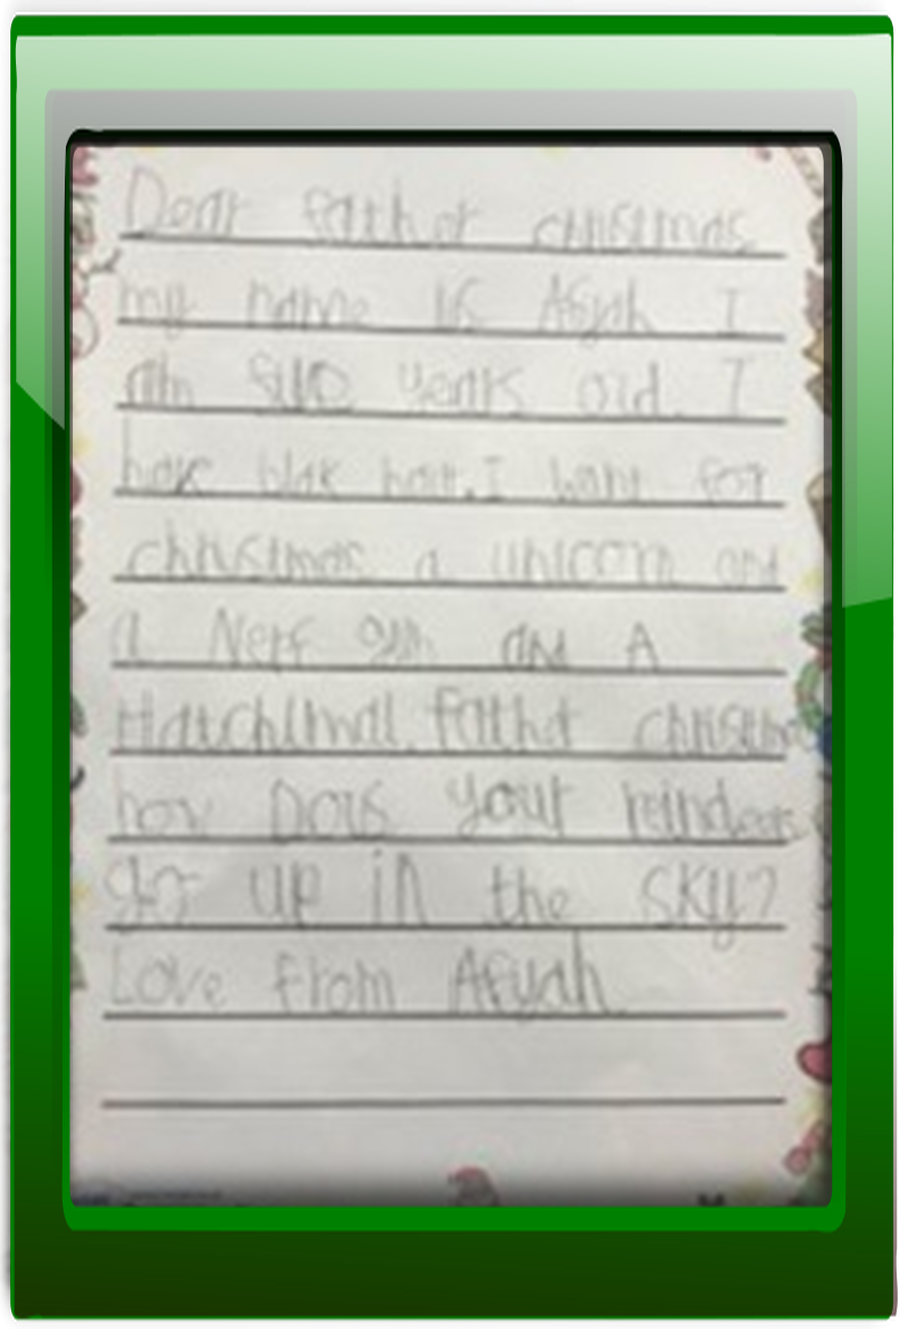 Dear father christmas
my name is Afyah I
am five years old. I
have blak hair. I want for
christmas a unicorn and
a Nerf gun and A
Hatchimal. father christm
how Dous your reindeers
go up in the sky?
Love from Afyah